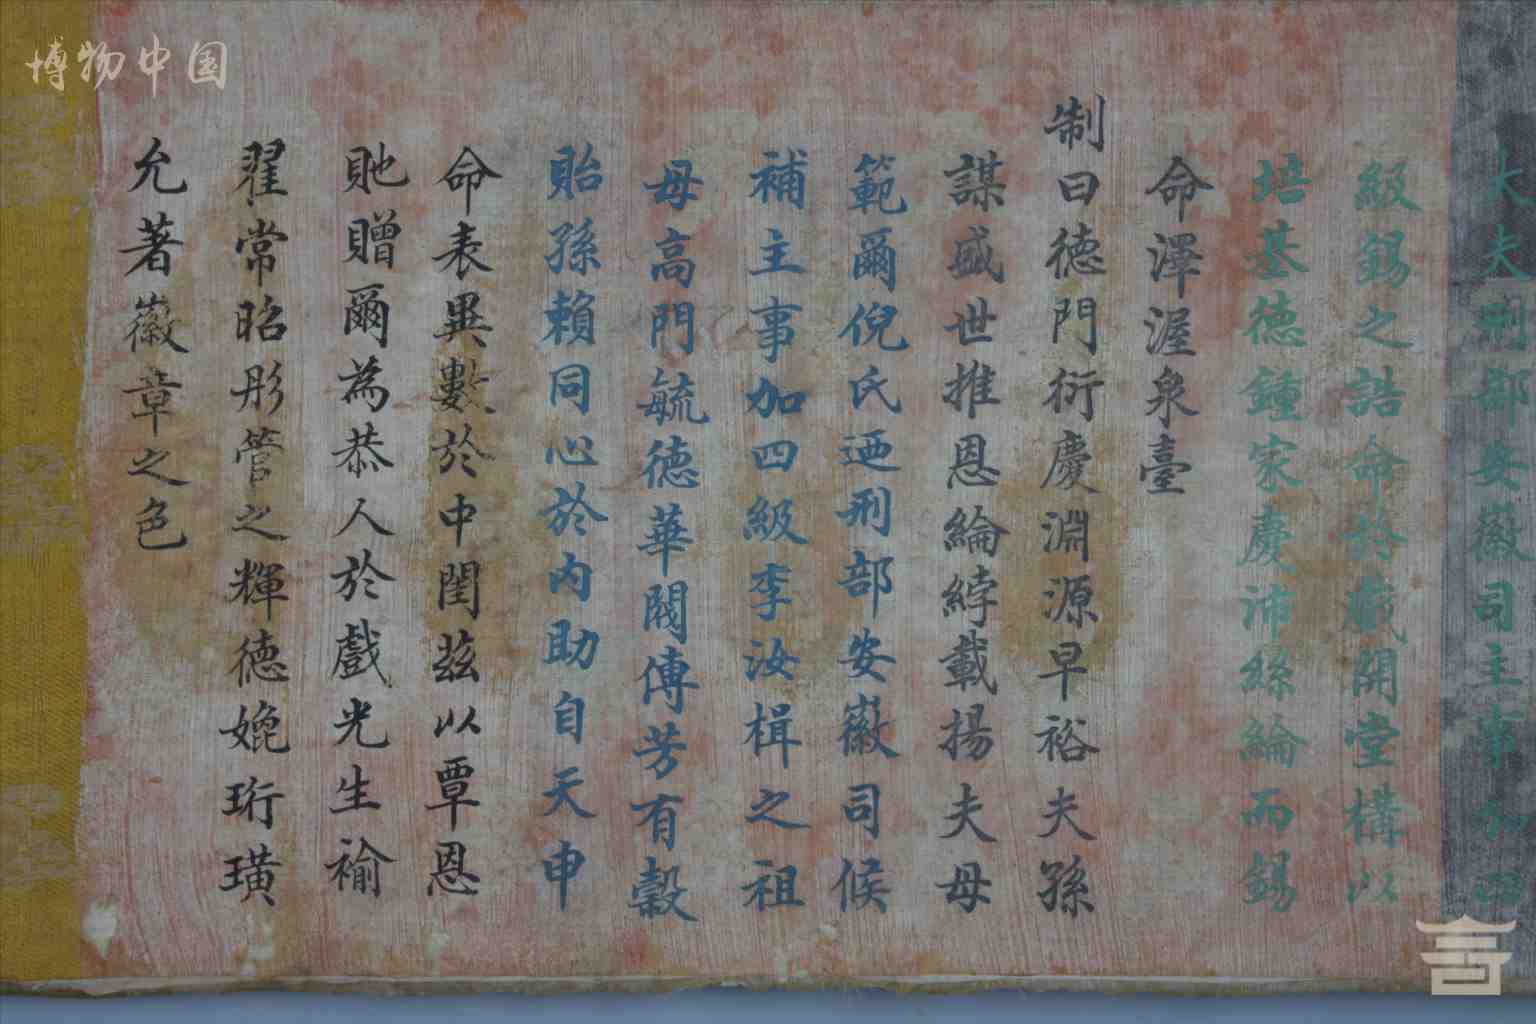 博物中国
大夫刑部安徽司主事加四
級錫之誥命於戲開堂構以
培基德鍾家慶沛絲綸而錫
命澤渥泉臺
制曰德門衍慶淵源早裕夫孫
謀盛世推恩綸綍載揚夫母
範爾倪氏迺刑部安徽司候
補主事加四級李汝楫之祖
母高門毓德華閥傳芳有穀
貽孫賴同心於內助自天申
命表異數於中閨茲以覃恩
貤贈爾為恭人於戲光生褕
翟常昭彤管之輝德媲珩璜
允著徽章之色